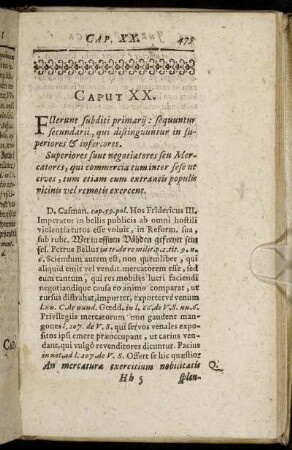 CAP. XX. 475
CAPUT XX.
FUerunt subditi primarij: sequuntur
secundarii, qui distinguuntur in su-
periores & inferiores.
Superiores sunt negotiatores seu Mer-
catores, qui commercia tum inter sese ut
cives, tum etiam cum extraneis populis
vicinis vel remotis exercent.
D. Casman. cap. 55. pol. Hos Fridericus III,
Imperator in bellis publicis ab omni hostili
violentia tutos esse voluit, in Reform. sua,
sub rubr. Wenn offnen Vähden gesezet sein
sol. Petrus Bellut in tr. de re milit. p. 2. tit. 9. n.
6. Sciendum autem est, non quemlibet, qui
aliquid emit vel vendit. mercatorem esse, sed
eum tantum, qui mobiles lucri faciendi
negotiandique causa eo animo comparat, ut
rursus distrahat, importet, exportet vé venum
l. un. C. de nund. Gœdd. in l. 66. de V. S. nu. 6.
Privilegiis mercatorum non gaudent man-
gones l. 207. de V. S, qui servos venales expo-
situros ipsi emere præoccupant, ut carius ven-
dant, qui vulgò revenditores dicuntur. Pacius
in not. ad l. 207 de V. S. Offert se hîc quæstio:
An mercaturæ exercitium nobilitatis Q.
Hh 5 splen-